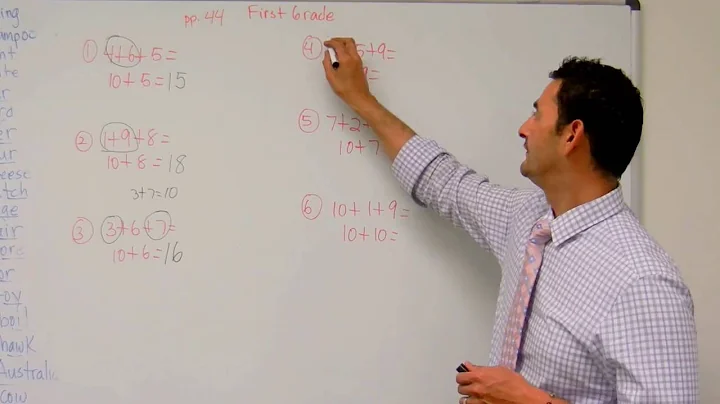 pp. 44 First Grade
① 4+6+5=
10+5=15
② 1+9+8=
10+8=18
3+7=10
③ 3+6+7=
10+6=16
④ 5+9=
9=
⑤ 7+2+
10+7
⑥ 10+1+9=
10+10=
ing
ampoo
nt
te
r
ro
er
ur
eese
atch
ge
eir
ore
or
oy
boil
hawk
Australi
coin